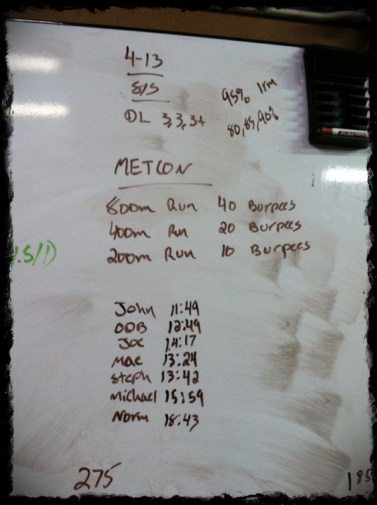 4-13
S/S 95% 1rm
DL 3,3,3+ 80,85,90%
METCON
800m Run 40 Burpees
400m Run 20 Burpees
200m Run 10 Burpees
.5/1)
John 11:49
OOB 12:49
Joe 14:17
Mac 13:24
Steph 13:42
Michael 15:59
Norm 18:43
275
185